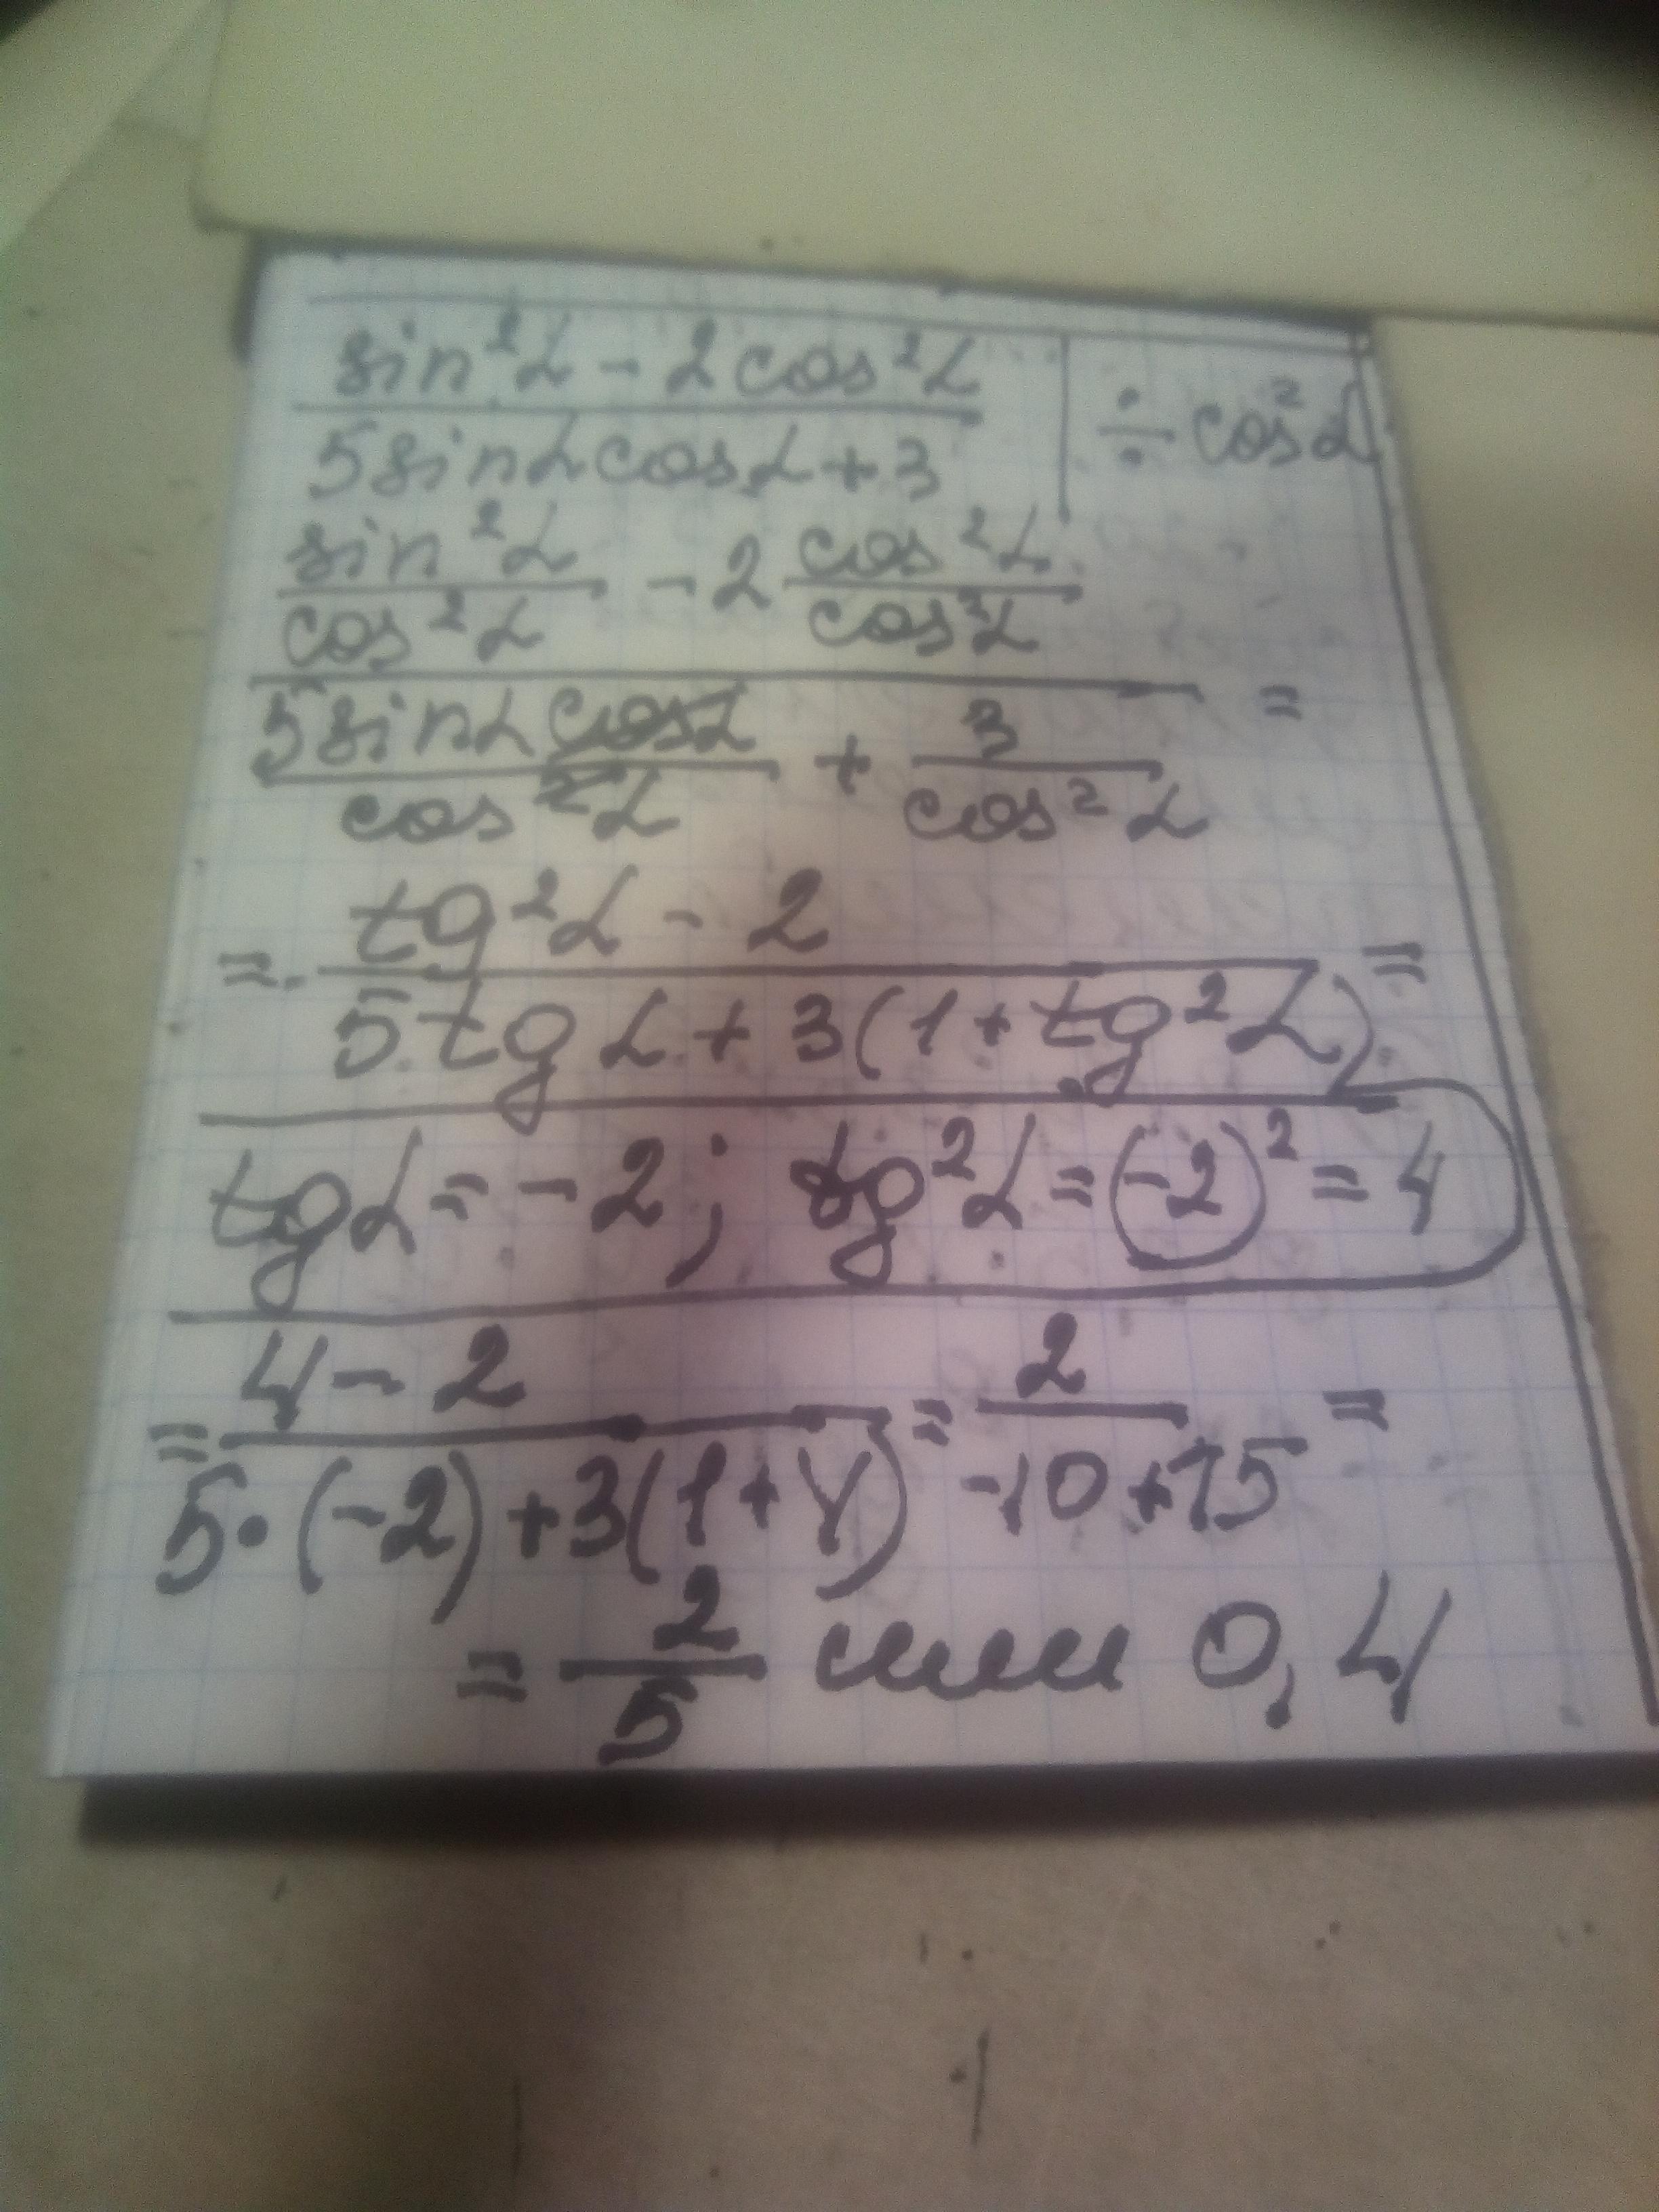 sin²α - 2cos²α
5sinαcosα + 3
÷ cos²α
sin²α/cos²α - 2 cos²α/cos²α
=
5sinαcosα/cos²α + 3/cos²α
= tg²α - 2 =
5·tgα + 3(1 + tg²α)
tgα = -2; tg²α = (-2)² = 4
= 4 - 2 = 2 =
5·(-2) + 3(1 + 4) -10 + 15
= 2/5 или 0,4